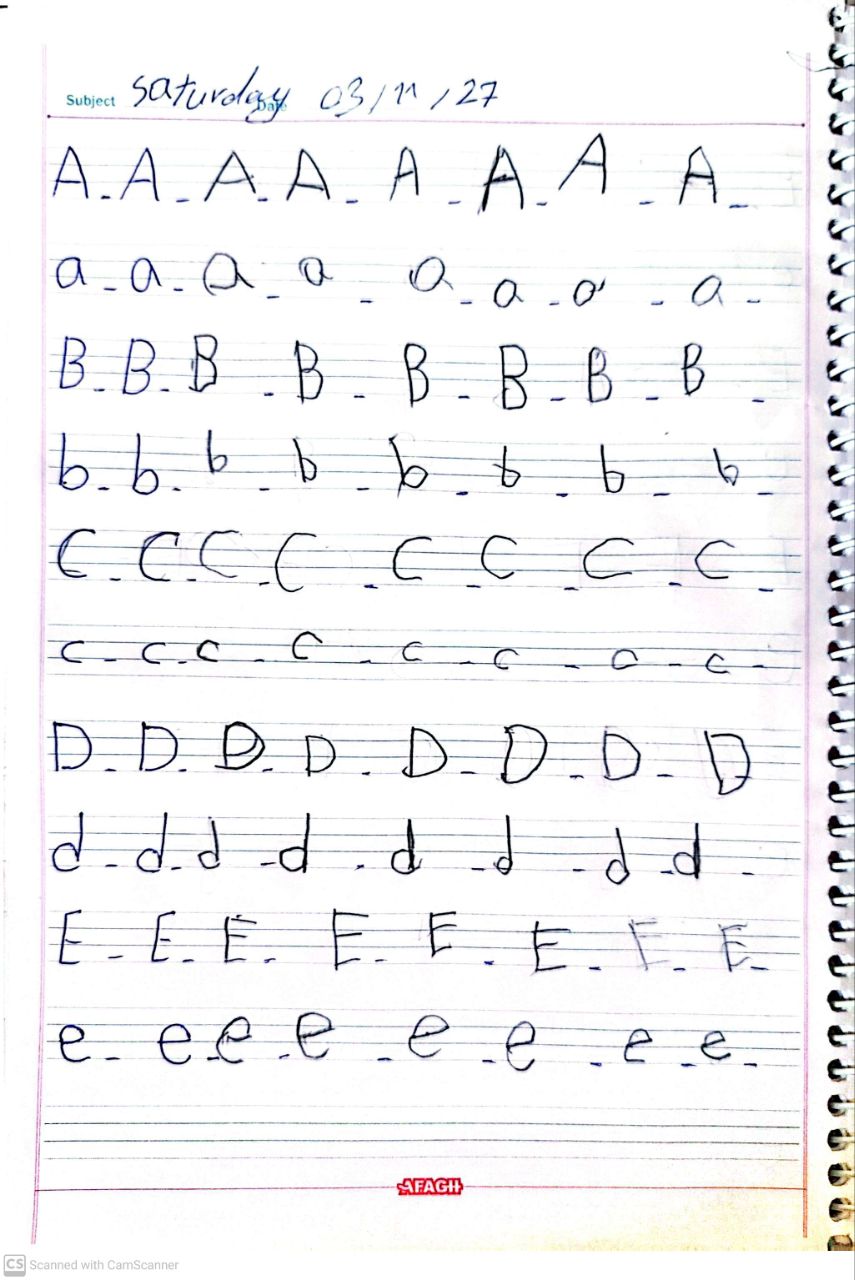 Subject saturday Date 03/11/27
A - A - A - A - A - A - A - A -
a - a - a - a - a - a - a - a -
B - B - B - B - B - B - B - B -
b - b - b - b - b - b - b - b -
C - C C C - C - C - C - C -
c - c - c - c - c - c - c - c -
D - D - D - D - D - D - D - D
d - d - d - d - d - d - d - d -
E - E - E - E - E - E - E - E -
e - e - e - e - e - e - e - e -
AFAGH
CS Scanned with CamScanner